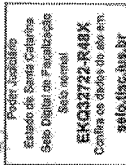 Poder Judiciário
Estado de Santa Catarina
Selo Digital de Fiscalização
Selo normal
EKQ32752-R48X
Confira os dados do ato em:
selo.tjsc.jus.br